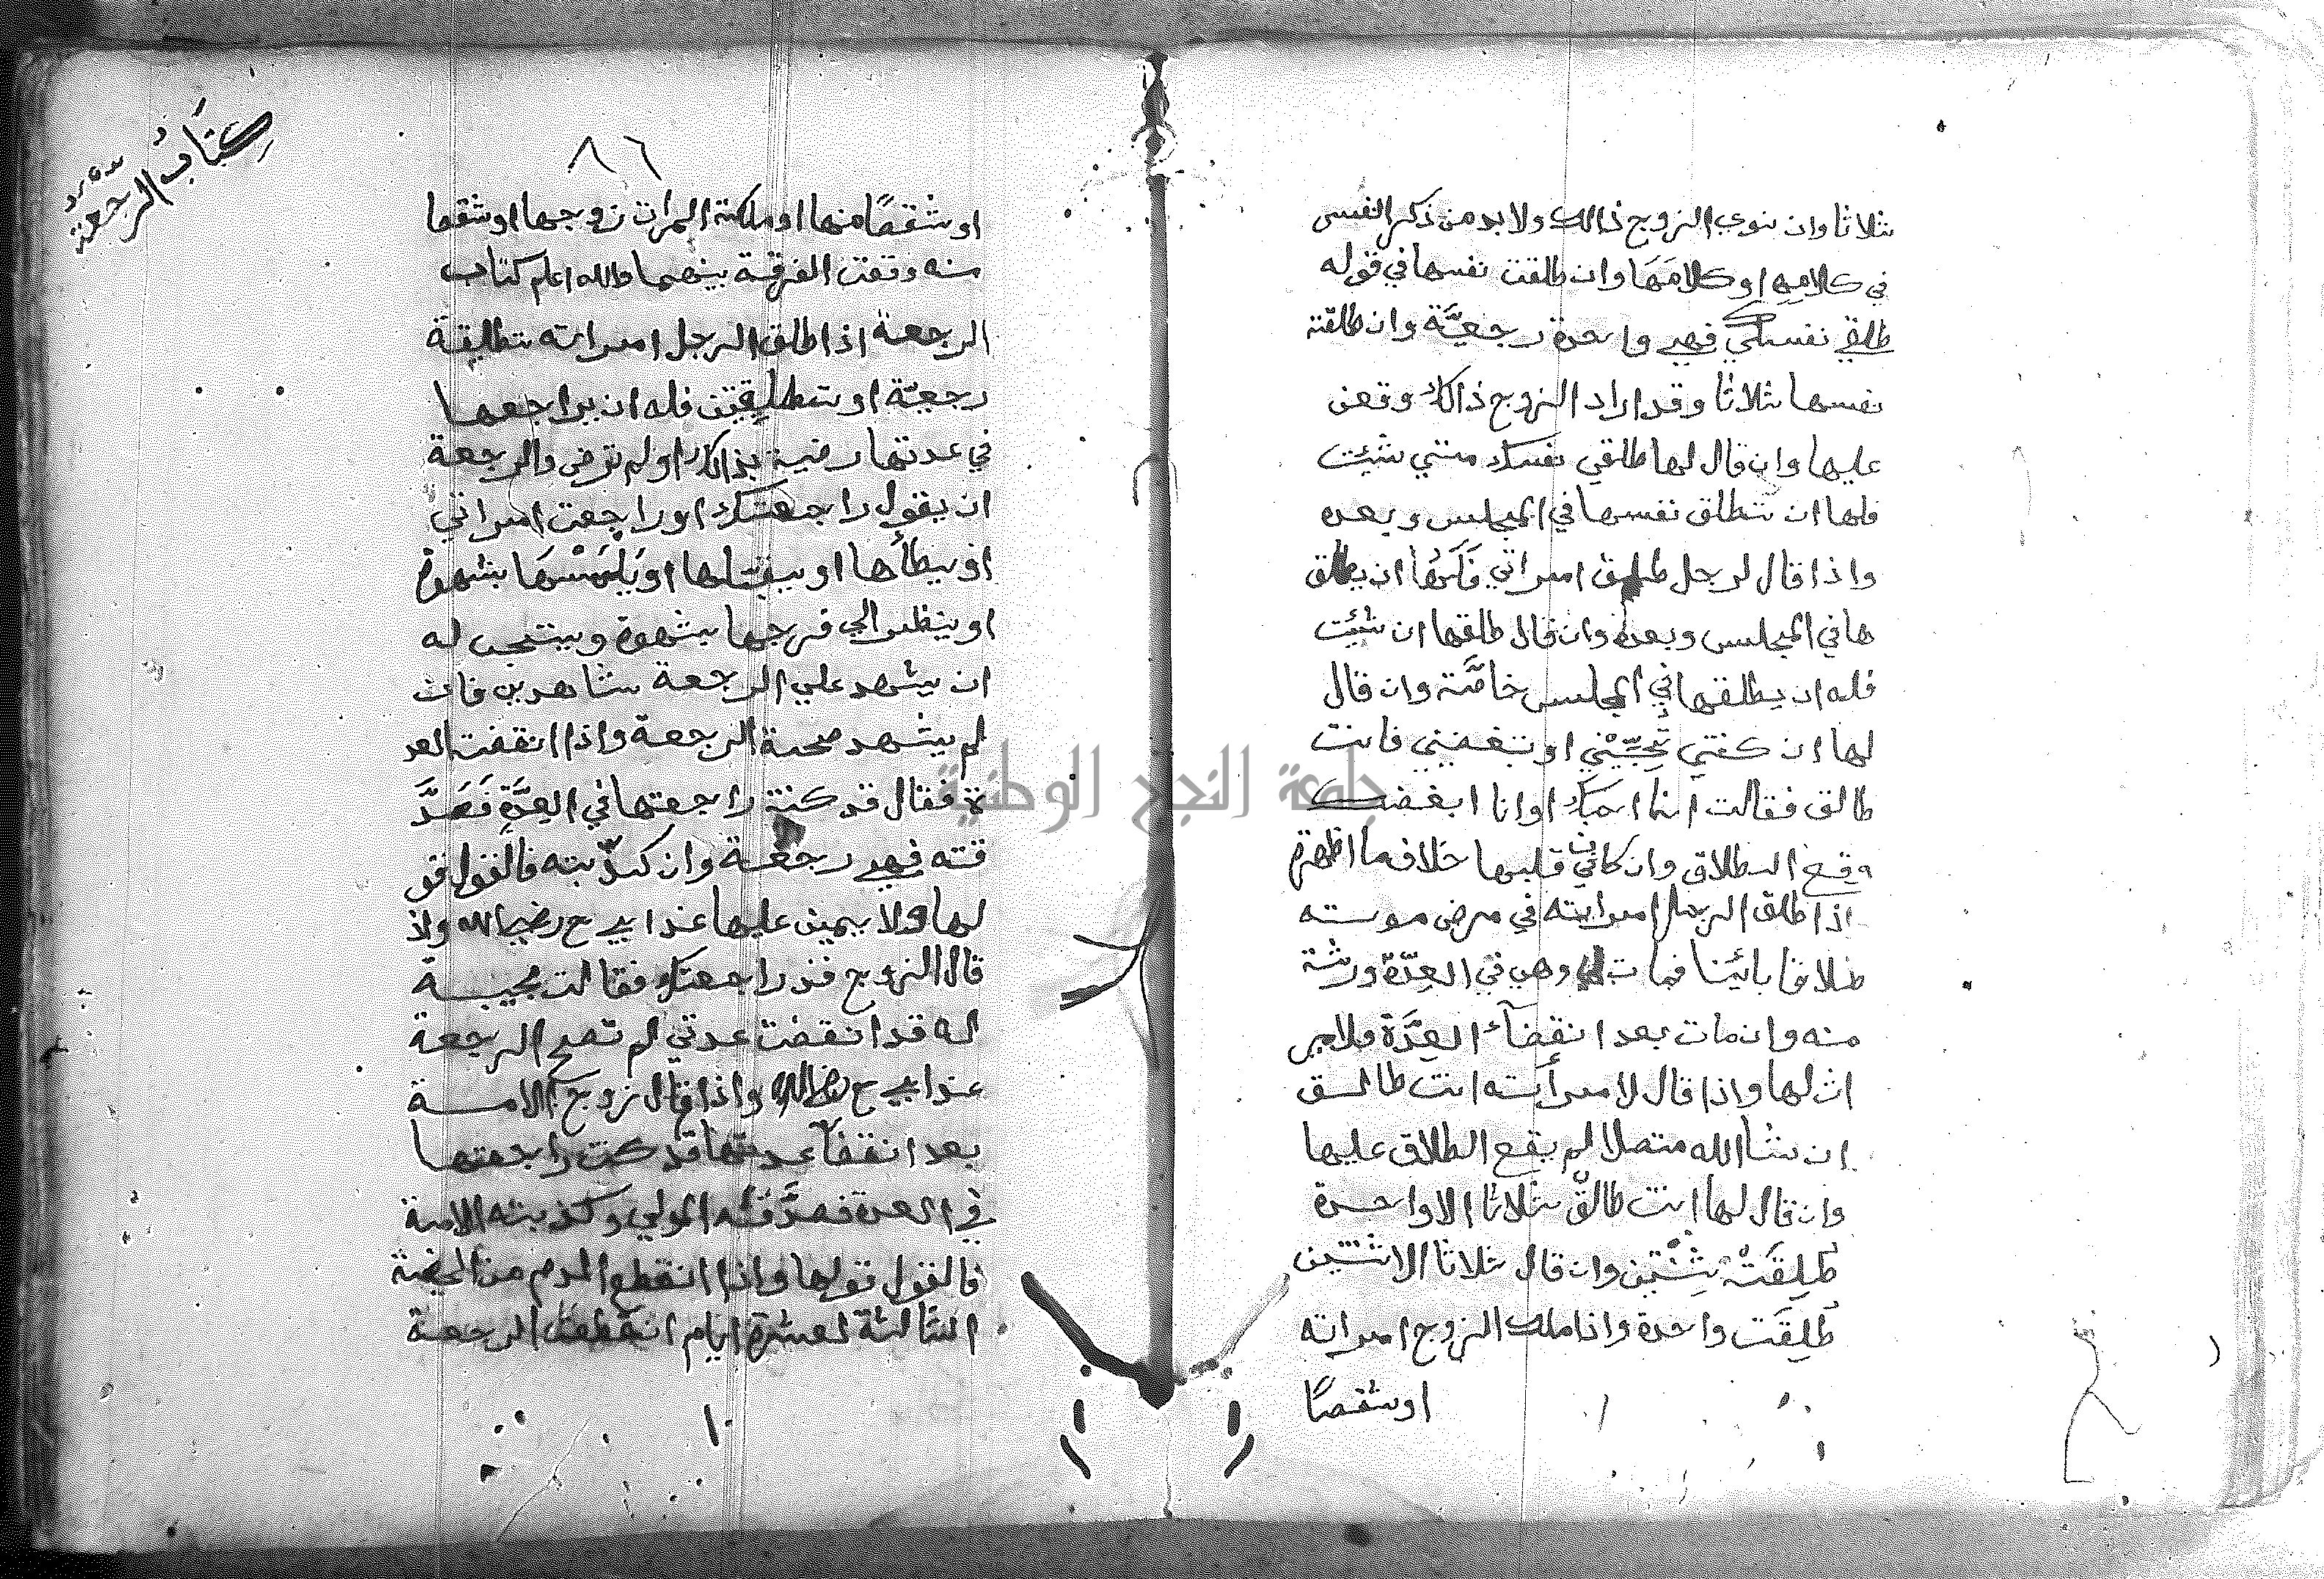 ثلاثا وان نوي الزوج ذالك ولا بد من ذكر النفس
في كلامه او كلامَهَا وان طلقت نفسها في قوله
طلقي نفسكي فهي واحدة رجعيَّة وان طلقته
نفسها ثلاثا وقد اراد الزوج ذالك وقعن
عليها وان قال لها طلقي نفسك متي شئت
فلها ان تطلق نفسها في المجلس وبعده
واذا قال لرجل طليق امراتي فَلَهَا ان يطلق
ها في المجلس وبعده وان قال طلقها ان شئت
فله ان يطلقها في المجلس خاصَّة وان قال
لها ان كنتي تحِبِّيْني او تبغضيني فانت
طالق فقالت انا احبك او انا ابغضك
وقع الطلاق وان كان في قلبها خلاف ما اظهرت
اذا طلق الرجل امراته في مرض موته
طلاقا بائينا فمات وهي في العِدَّة ورثة
منه وان مات بعد انقضآء العِدَّة فلا مير
اث لها واذا قال لامرأته انت طالق
ان شأ الله متصلا لم يقع الطلاق عليها
وان قال لها انت طالق ثلاثا الا واحدة
طَلِقَتْ ثِنْتَين وان قال ثلاثا الا اثنتين
طَلِقَت واحدة واذا ملك الزوج امراته
او شقصًا
كتَابُ الرّجْعَة
٨٦
او شقصًا منها او ملكة المرات زوجها او شقصا
منه وقعت الفرقة بينهما والله اعلم كتاب
الرجعة اذا طلق الرجل امراته تطليقة
رجعيّة او تطليقتين فله ان يراجعها
في عدتها رضية بذالك او لم ترض والرجعة
ان يقول راجعتك او راجعت امراتي
او يطأها او يقبلها او يَلمسْهَا بشهوة
او ينظر الي فرجها بشهوة ويستحب له
ان يشهد علي الرجعة شاهدين فان
لم يشهد صحة الرجعة واذا انقضت العد
ة فقال قد كنت راجعتها في العِدَّةِ فَصَدَّ
قته فهي رجعة وان كذّبته فالقول قو
لها ولا يمين عليها عند ابي ح رضي الله واذ
قال الزوج قد راجعتك فقالت مجيبة
له قد انقضت عدتي لم تصح الرجعة
عند ابي ح رضي الله واذا قال زوج الامة
بعد انقضآ عدتها قد كنت راجعتها
في العدة فصدَّقه المولي وكذبته الامة
فالقول قولها واذا انقطع الدم من الحيضة
الثالثة لعشرة ايام انقطعت الرجعة
جامعة النجاح الوطنية